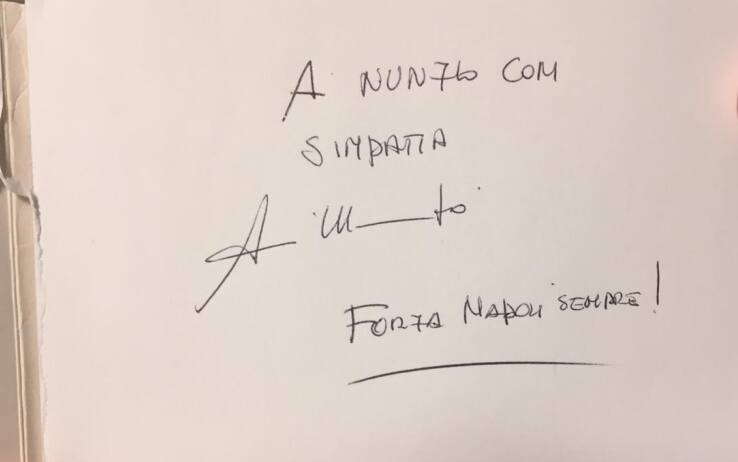 A NUNZIO CON
SIMPATIA
FORZA NAPOLI SEMPRE!